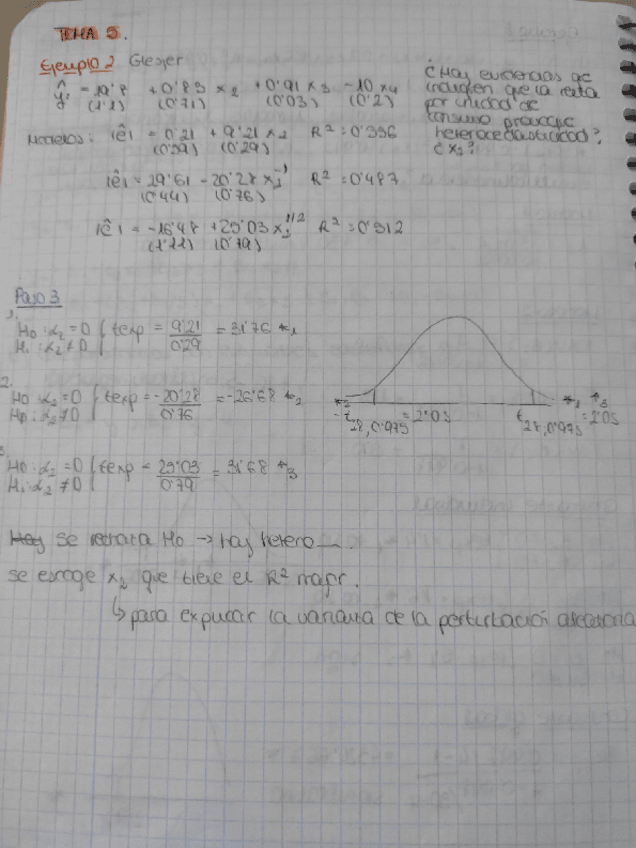 TEMA 5.
Ejemplo 2 Glesjer
ŷi = 19'8 + 0'83 x2 + 0'91 x3 - 10 x4
(1'1) (0'71) (0'03) (0'2)
¿Hay evidencias qe
indiquen que la renta
por unidad de
consumo provoque
heterocedasticidad?
¿x2?
Modelos: |ê| = 0'21 + 9'21 x2 R² = 0'336
(0'39) (0'29)
|ê| = 29'61 - 20'28 x2⁻¹ R² = 0'487
(0'44) (0'76)
|ê| = -16'48 + 25'03 x2^1/2 R² = 0'312
(1'22) (0'79)
Paso 3
1. H0: α2 = 0 texp = 9'21 / 0'29 = 31'76 *1
H1: α2 ≠ 0
2. H0: α2 = 0 texp = -20'28 / 0'76 = -26'68 *2
H0: α2 ≠ 0
3. H0: α2 = 0 texp = 25'03 / 0'79 = 31'68 *3
H1: α2 ≠ 0
*2 -t28,0'975 = 2'05 t28,0'975 = 2'05 *1 *3
Hay se rechaza H0 → hay hetero
se escoge x2 que tiene el R² mayor.
↳ para explicar la varianza de la perturbació aleatoria